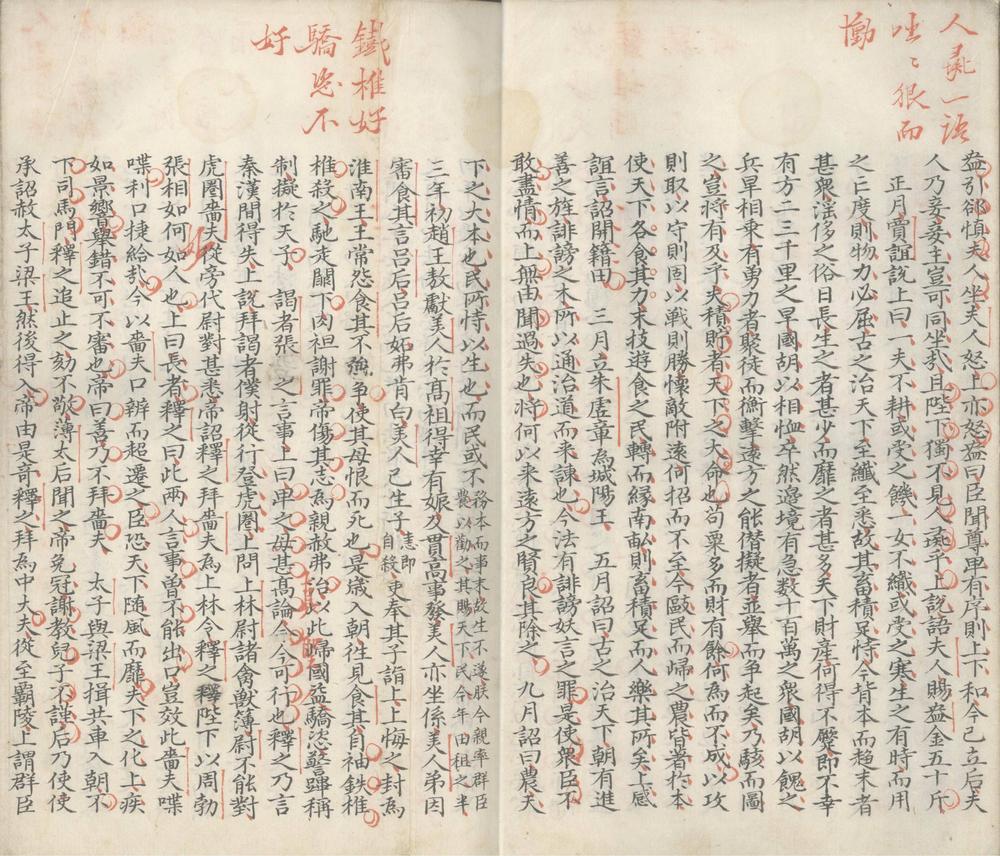 人彘一語
坐〻狠而
慟
盎引郤慎夫人坐夫人怒上亦怒盎曰臣聞尊卑有序則上下和今已立后夫
人乃妾妾主豈可同坐哉且陛下獨不見人彘乎上說語夫人賜盎金五十斤
正月賈誼說上曰一夫不耕或受之饑一女不織或受之寒生之有時而用
之亡度則物力必屈古之治天下至纖至悉故其畜積足恃今背本而趍末者
甚衆淫侈之俗日長生之者甚少而靡之者甚多天下財產何得不蹷即不幸
有方二三千里之旱國胡以相恤卒然邊境有急数十百萬之衆國胡以餽之
兵旱相乗有勇力者聚徒而衡擊遠方之能僣擬者並舉而争起矣乃駭而圖
之豈將有及乎夫積貯者天下之大命也苟粟多而財有餘何為而不成以攻
則取以守則固以戰則勝懷敵附遠何招而不至今毆民而歸之農皆著於本
使天下各食其力末技遊食之民轉而緣南畝則畜積足而人樂其所矣上感
誼言詔開籍田　三月立朱虛章為城陽王　五月詔曰古之治天下朝有進
善之旌誹謗之木所以通治道而来諫也今法有誹謗妖言之罪是使衆臣不
敢盡情而上無由聞過失也將何以来遠方之賢良其除之　九月詔曰農天
鐵椎好
驕恣不
好
下之大本也民所恃以生也而民或不
務本而事末故生不遂朕今親率群臣
農以勸之其賜天下民今年田租之半
三年初趙王敖獻美人於髙祖得幸有娠及貫高事發美人亦坐係美人弟因
審食其言吕后吕后妬弗肯白美人已生子
恚即
自殺
吏奉其子詣上上悔之封為
淮南王王常怨食其不強争使其母恨而死也是歲入朝徃見食其自袖鉄椎
椎殺之馳走闕下肉袒謝罪帝傷其志為親赦弗治以此歸國益驕恣警蹕稱
制擬於天子　謁者張　之言事上曰卑之毋甚髙論令今可行也釋之乃言
秦漢間得失上說拜謁者僕射從行登虎圈上問上林尉諸禽獸簿尉不能對
虎圈嗇夫從旁代尉對甚悉帝詔釋之拜嗇夫為上林令釋之曰陛下以周勃
張相如何如人也上曰長者釋之曰此兩人言事曾不能出口豈效此嗇夫喋
喋利口捷給哉今以嗇夫口辨而超遷之臣恐天下随風而靡夫下之化上疾
如景響舉錯不可不審也帝曰善乃不拜嗇夫　太子與梁王揖共車入朝不
下司馬門釋之追止之劾不敬薄太后聞之帝免冠謝教兒子不謹后乃使使
承詔赦太子梁王然後得入帝由是竒釋之拜為中大夫從至霸陵上謂群臣